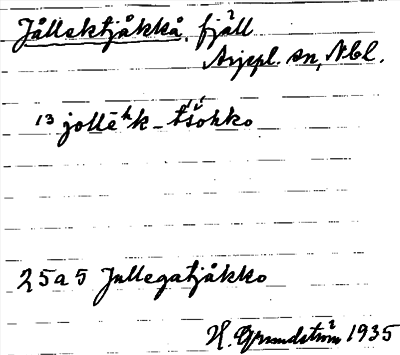 Jållektjåkkå, fjäll
Arjepl. sn, Nbl.
13 jollēʰk - tsohko
25a5 Jullegatjåkko
H. Grundström 1935